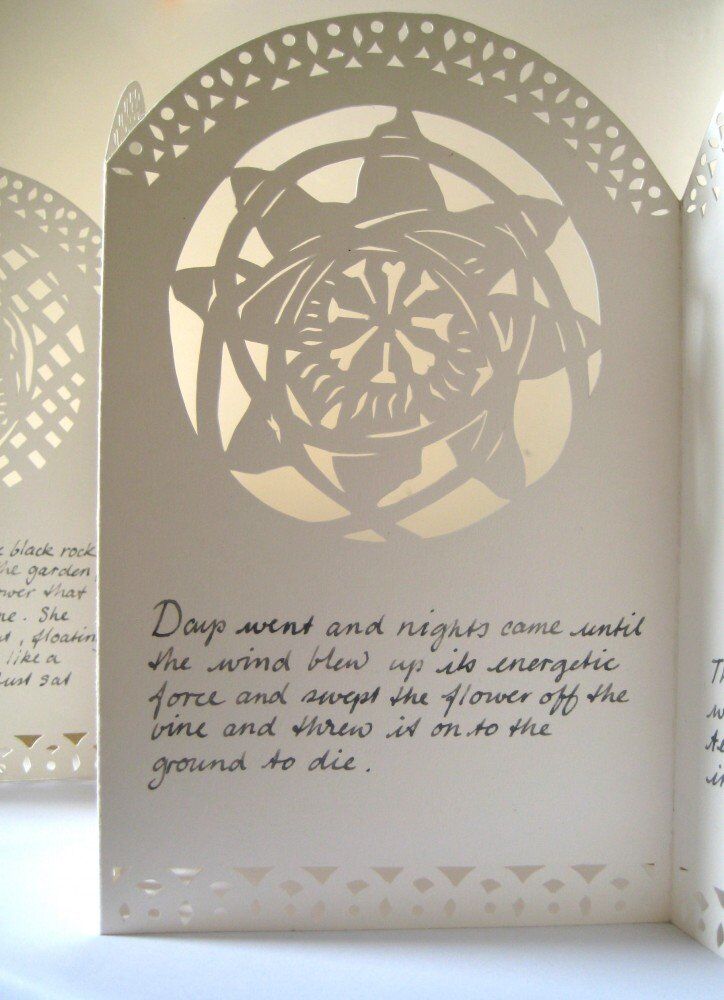 e black rock
the garden
ower that
ne. She
at, floating
like a
dust sat
Days went and nights came until
the wind blew up its energetic
force and swept the flower off the
vine and threw it on to the
ground to die.
Th
w
te
in